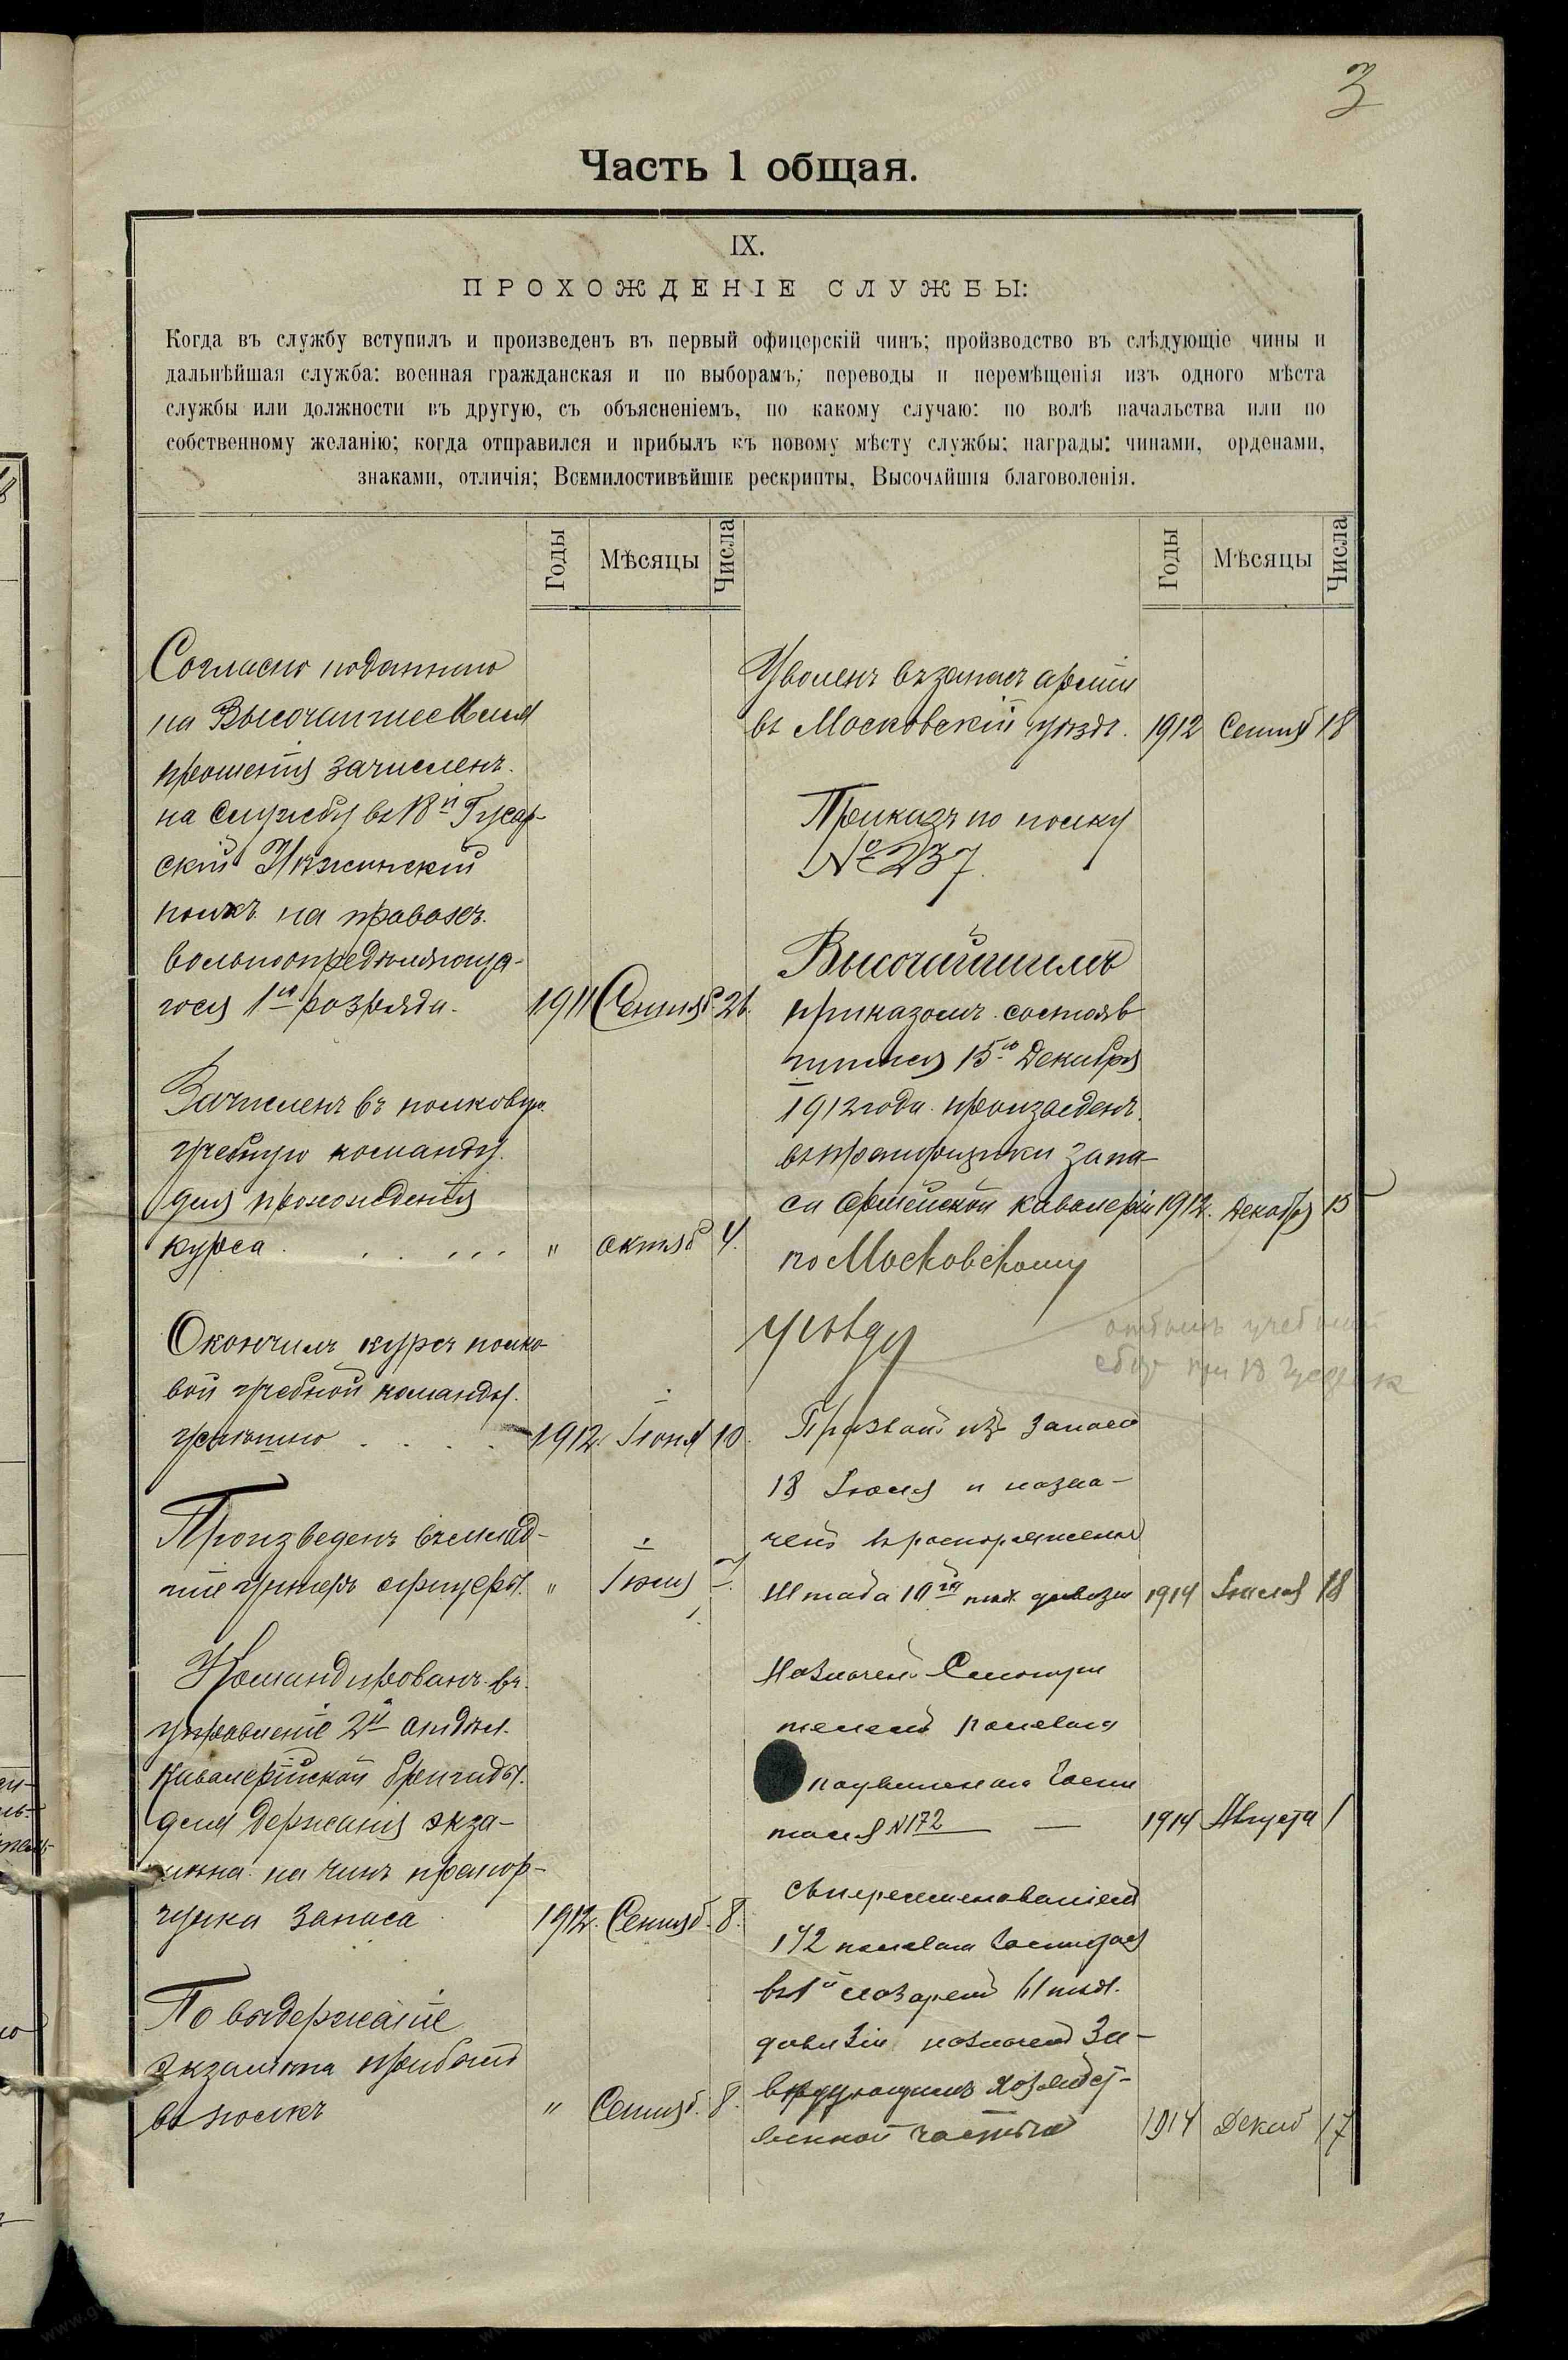 3
Часть 1 общая.
IX.
ПРОХОЖДЕНІЕ СЛУЖБЫ:
Когда въ службу вступилъ и произведенъ въ первый офицерскій чинъ; пройзводство въ слѣдующіе чины и
дальнѣйшая служба: военная гражданская и по выборамъ; переводы и перемѣщенія изъ одного мѣста
службы или должности въ другую, съ объясненіемъ, по какому случаю: по волѣ начальства или по
собственному желанію; когда отправился и прибылъ къ новому мѣсту службы; награды: чинами, орденами,
знаками, отличія; Всемилостивѣйшіе рескрипты, Высочайшія благоволенія.
Годы Мѣсяцы Числа
Согласно поданному
на Высочайшее Имя
прошенія зачисленъ
на службу въ 18й Гусар-
скій Нѣжинскій
полкъ на правахъ
вольноопредѣляюща-
гося 1го разряда. 1911 Сентяб. 26.
Зачисленъ въ полковую
учебную команду
для прохожденія
курса . . . . . " октяб 4.
Окончилъ курсъ полко-
вой учебной команды
успѣшно . . . . 1912. Іюня 10.
Произведенъ въ млад-
шіе унтеръ офицеры. " Іюня
Командированъ въ
управленіе 2й отдѣл.
Кавалерійской бригады.
для держанія экза-
мена на чинъ прапор-
щика запаса 1912. Сентяб. 8.
По выдержаніе
экзамена прибылъ
въ полкъ " Сентяб. 8.
Годы Мѣсяцы Числа
Уволенъ въ запасъ арміи
въ Московскій уѣздъ. 1912 Сентяб 18
Приказъ по полку
№ 237.
Высочайшимъ
приказомъ состояв-
шимся 15го Декабря
1912 года произведенъ
въ прапорщики запа-
са Армейской кавалеріи 1912. Декабря 15
по Московскому
уѣзду
отбылъ учебный
сборъ при 18 Гусар. п к
Призванъ изъ запаса
18 Іюля и назна-
ченъ въ распоряженіе
Штаба 10й пѣх. дивизіи 1914 Іюля 18
Назначенъ Смотри-
телемъ полевого
подвижного госпи-
таля №172 — 1914 Августа 1
Съ переименованіемъ
172 полевого госпиталя
въ 1й лазаретъ 61 пѣх.
дивизіи назначенъ За-
вѣдующимъ хозяйст-
венной частью 1914 Декаб 17